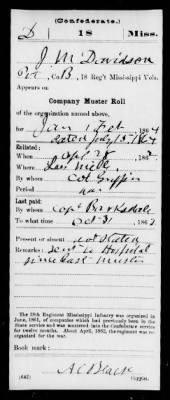 (Confederate.)
D 18 Miss.
J M Davidson
Pvt, Co. B, 18 Reg't Mississippi Vols.
Appears on
Company Muster Roll
of the organization named above,
for Jan & Feb, 1864
July 15, 1864
Enlisted:
When Apr 28, 186
Where
By whom Col Griffin
Period war
Last paid:
By whom Capt Barksdale
To what time Oct 31, 1863
Present or absent not stated
Remarks: Sent to Hospital
since last muster
The 18th Regiment Mississippi Infantry was organized in
June, 1861, of companies which had previously been in the
State service and was mustered into the Confederate service
for twelve months. About April, 1862, the regiment was re-
organized for the war.
Book mark:
(642) A C Black
Copyist.